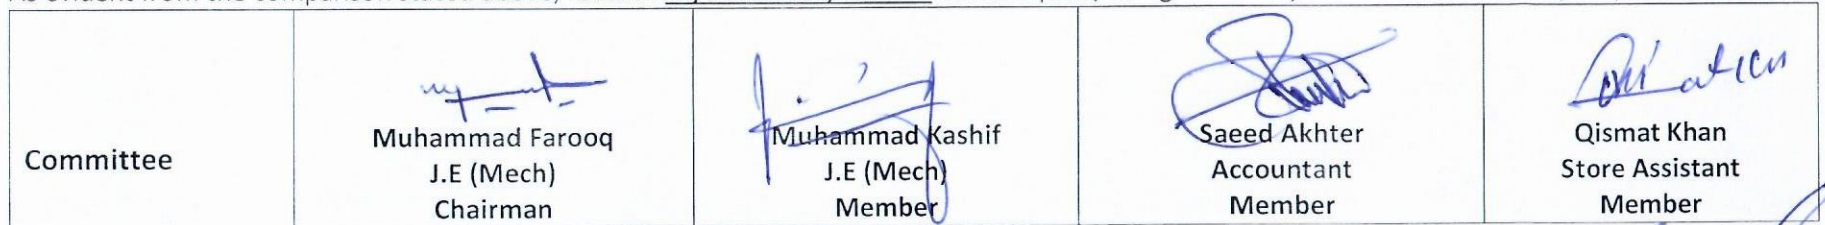 Committee
Muhammad Farooq
J.E (Mech)
Chairman
Muhammad Kashif
J.E (Mech)
Member
Saeed Akhter
Accountant
Member
Qismat Khan
Store Assistant
Member